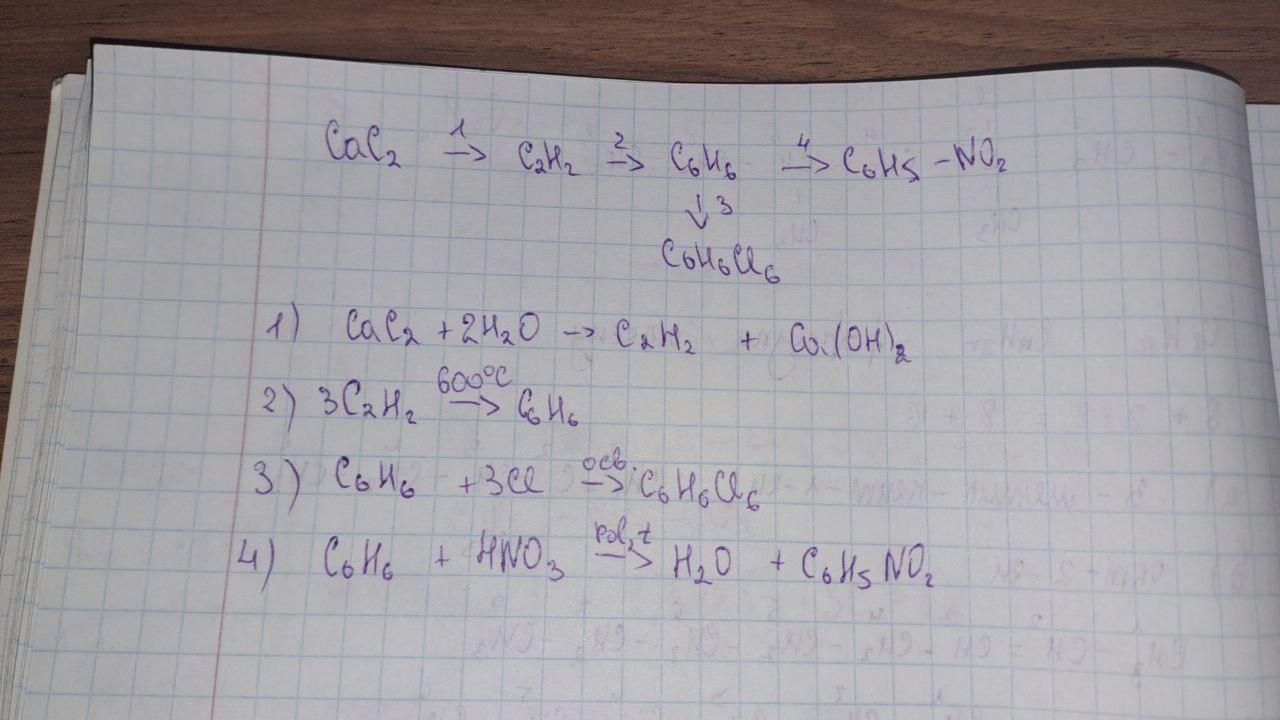 CaC₂ 1→ C₂H₂ 2→ C₆H₆ 4→ C₆H₅-NO₂
↓3
C₆H₆Cl₆
1) CaC₂ + 2H₂O → C₂H₂ + Ca(OH)₂
2) 3C₂H₂ 600°C→ C₆H₆
3) C₆H₆ + 3Cl осв.→ C₆H₆Cl₆
4) C₆H₆ + HNO₃ t→ H₂O + C₆H₅NO₂